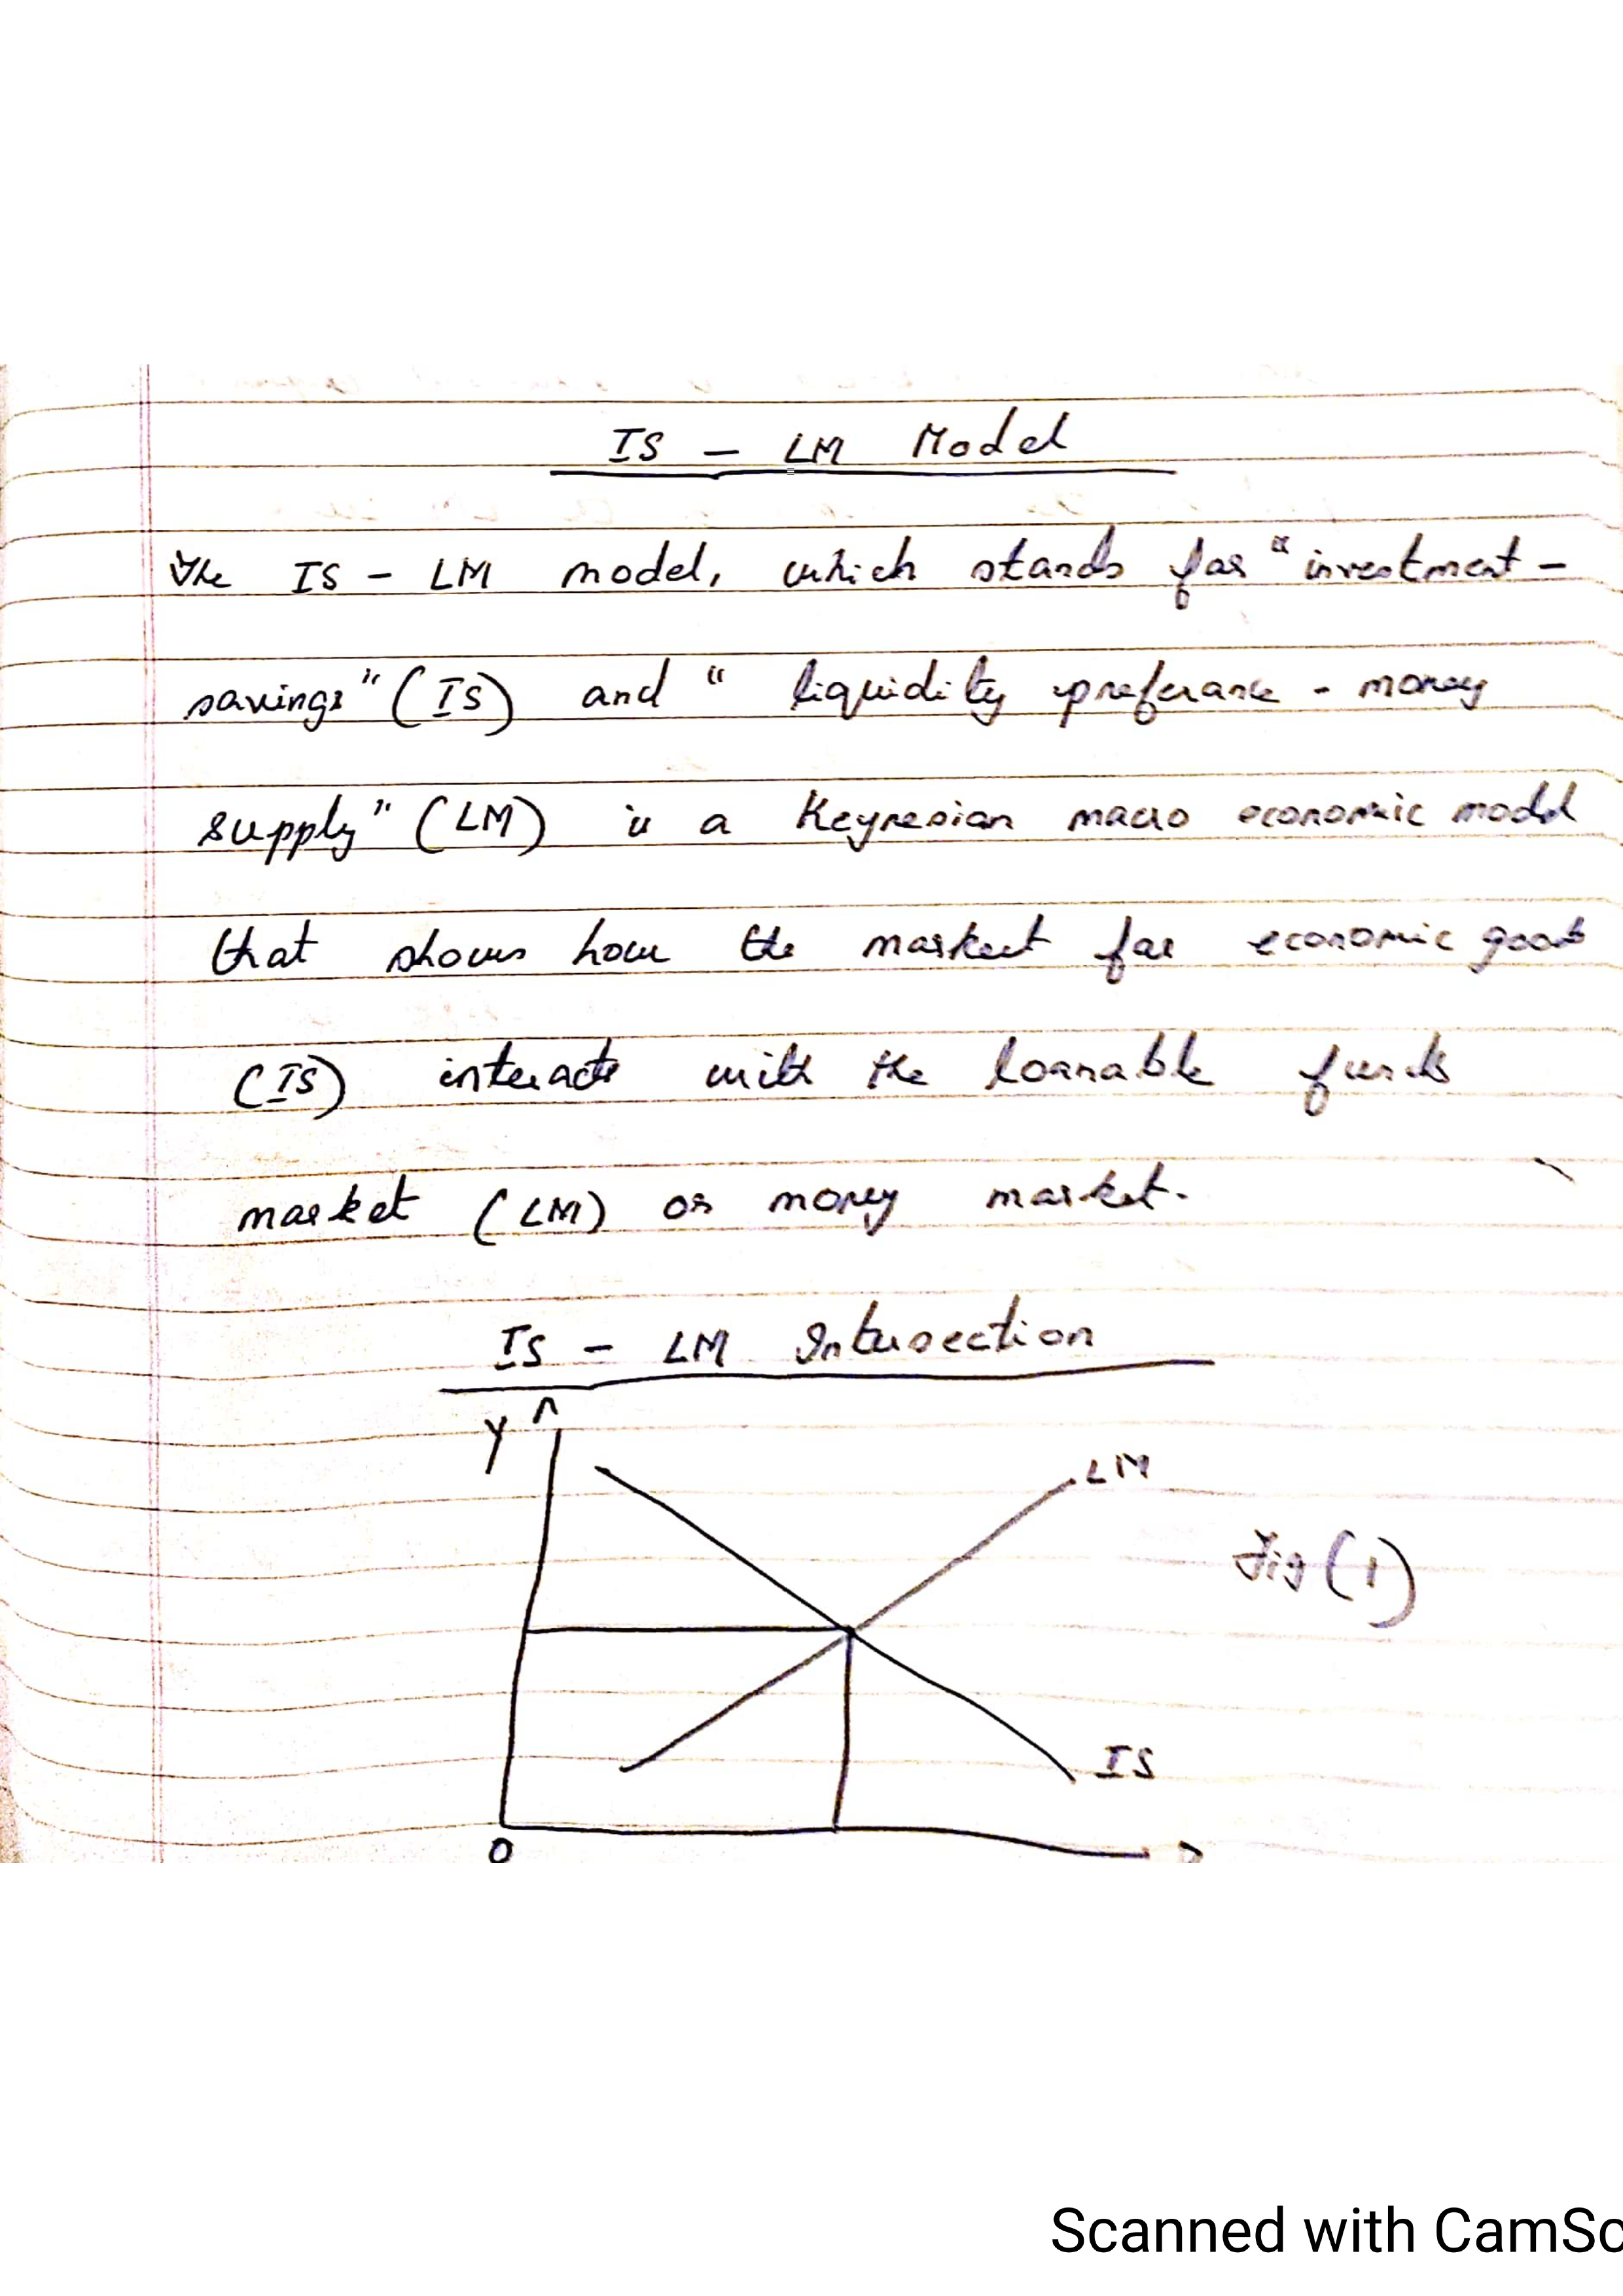 IS - LM Model
The IS - LM model, which stands for "investment -
savings" (IS) and "liquidity preferance - money
supply" (LM) is a Keynesian macro economic model
that shows how the market for economic goods
(IS) interacts with the loanable funds
market (LM) or money market.
IS - LM Intersection
Y
LM
Fig (1)
IS
O
Scanned with CamSc